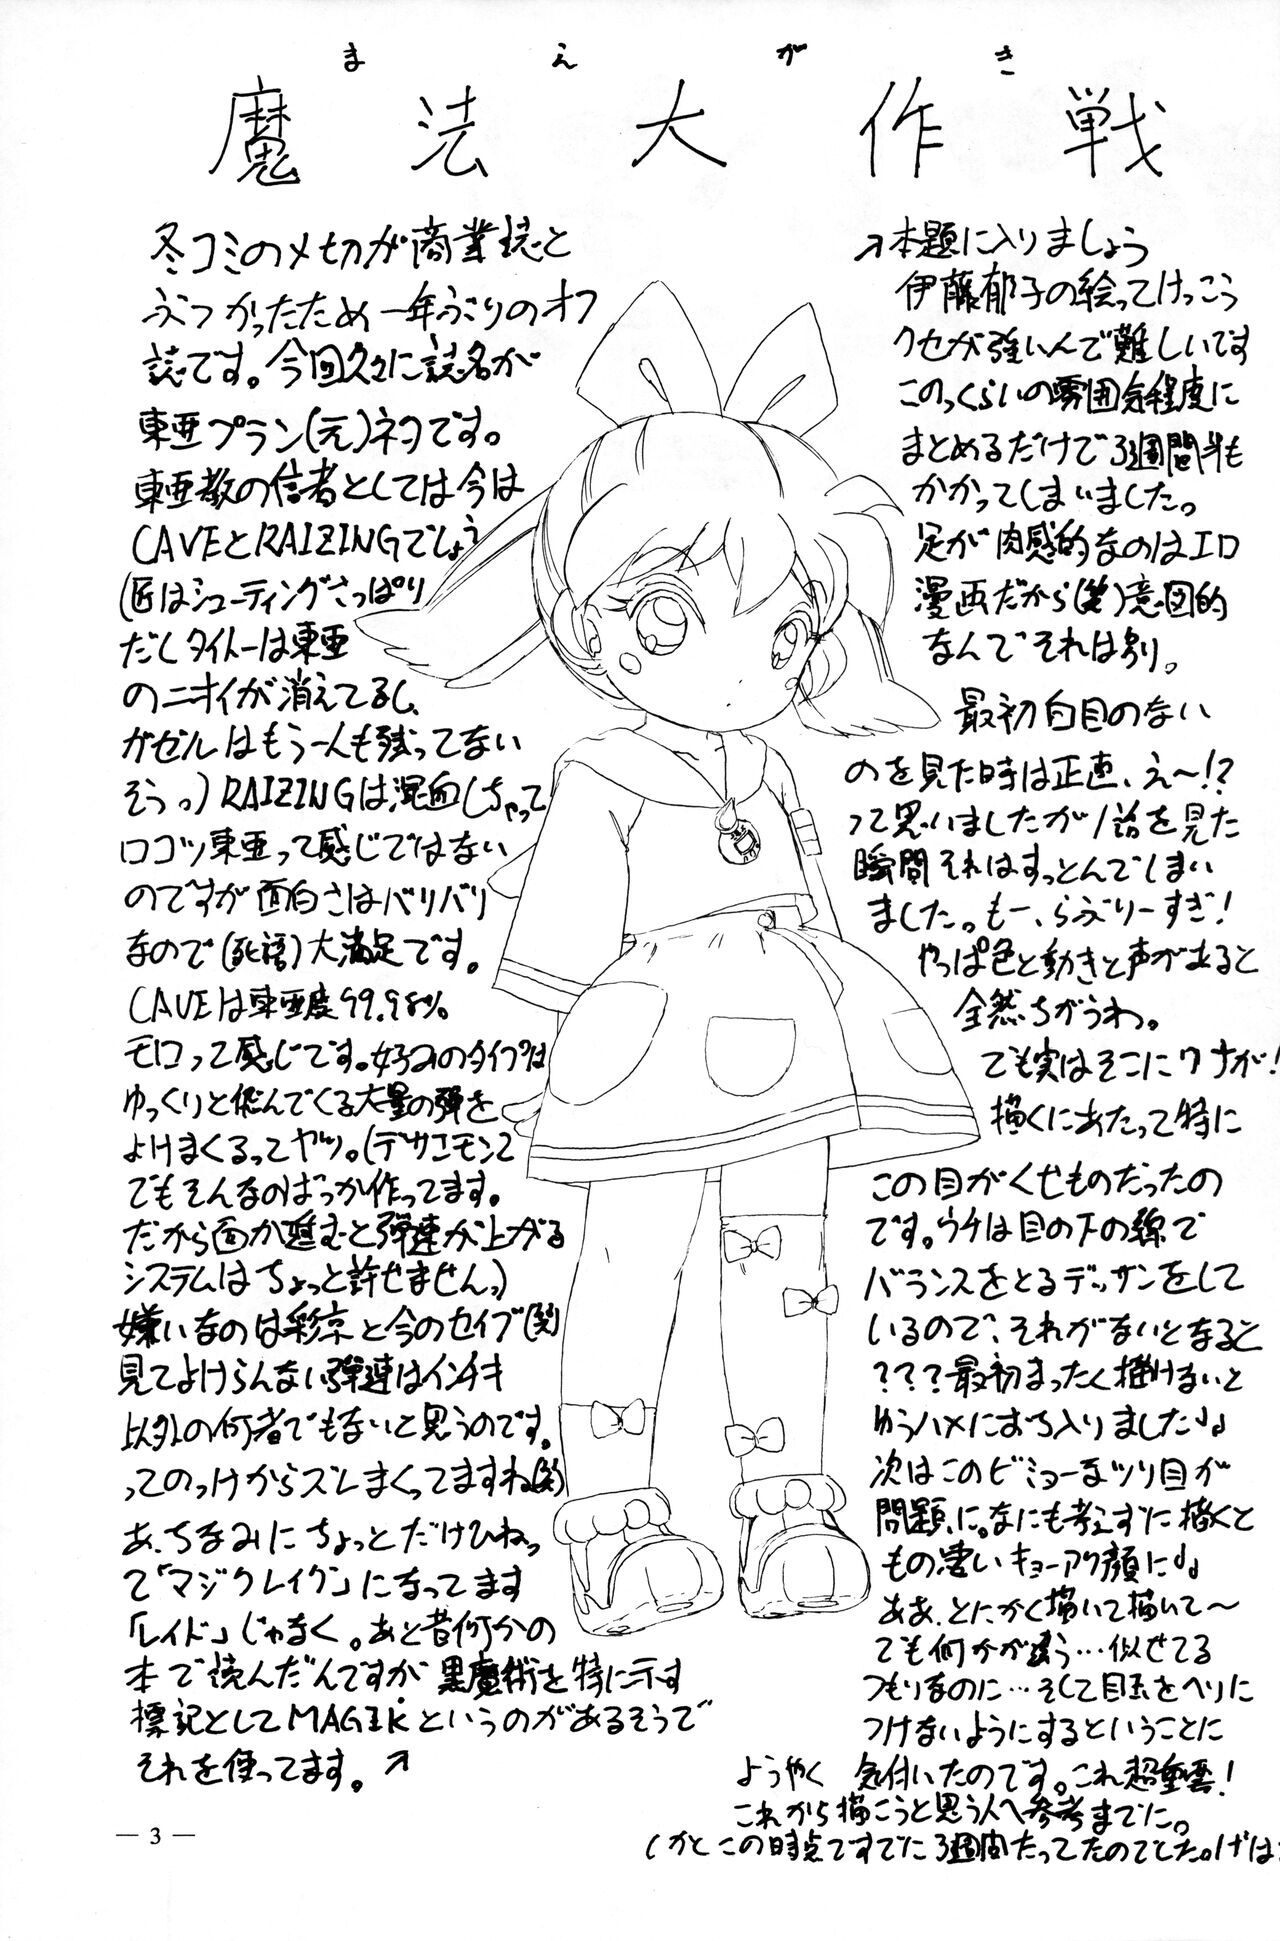 まえがき
魔法大作戦
冬コミのメ切が商業誌と
ぶつかったため一年ぶりのオフ
誌です。今回久々に誌名が
東亜プラン(元)ネタです。
東亜教の信者としては今は
CAVEとRAIZINGでしょう
(匠はシューティングさっぱり
だしタイトーは東亜
のニオイが消えてるし、
ガゼルはもう一人も残ってない
そうっ)RAIZINGは混血しちゃって
ロコツ東亜って感じではない
のですが面白さはバリバリ
なので(死語)大満足です。
CAVEは東亜度99.98%
モロって感じです。好みのタイプは
ゆっくりと飛んでくる大量の弾を
よけまくるってヤツ。(デザエモン2
でもそんなのばっか作ってます。
だから面が進むと弾速が上がる
システムはちょっと許せませんっ)
嫌いなのは彩京と今のセイブ(笑)
見てよけらんない弾速はインチキ
以外の何者でもないと思うのです。
ってのっけからズレまくってますね(笑)
あ、ちなみにちょっとだけひねっ
て「マジクレイク」になってます
「レイド」じゃなく。あと昔何かの
本で読んだんですが黒魔術を特に示す
標記としてMAGIKというのがあるそうで
それを使ってます。↗
↗本題に入りましょう
伊藤郁子の絵ってけっこう
クセが強いんで難しいです
このっくらいの雰囲気程度に
まとめるだけで3週間半も
かかってしまいました。
足が肉感的なのはエロ
漫画だから(笑)意図的
なんでそれは別。
最初白目のない
のを見た時は正直、え〜!?
って思いましたが1話を見た
瞬間それはすっとんでしまい
ました。もー、らぶりーすぎ!
やっぱ色と動きと声があると
全然ちがうわ。
でも実はそこにワナが!
描くにあたって特に
この目がくせものだったの
です。ウチは目の下の線で
バランスをとるデッサンをして
いるので、それがないとなると
???最初まったく描けないと
ゆうハメにおち入りました♩
次はこのビミョーなツリ目が
問題に。なにも考えずに描くと
もの凄いキョーアク顔に♩
ああ、とにかく描いて描いて〜
でも何かが違う…似せてる
つもりなのに…そして目玉をヘリに
つけないようにするということに
ようやく気付いたのです。これ超重要!
これから描こうと思う人へ参考までに。
(かとこの時点ですでに3週間たってたのでした。げは
— 3 —